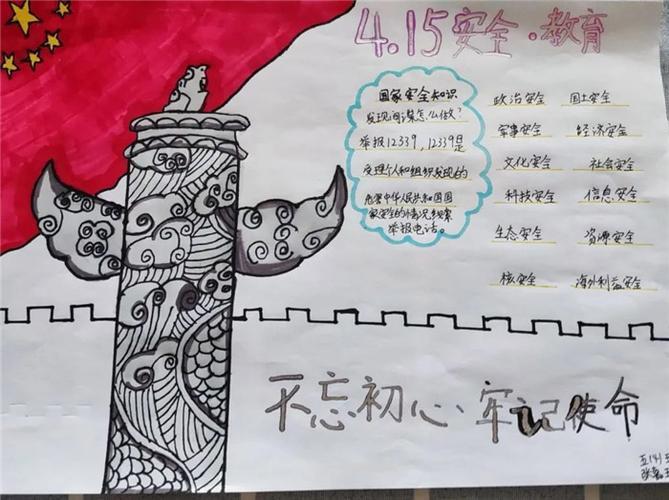 4.15安全·教育
国家安全知识
发现间谍怎么做?
举报12339,12339是
受理个人和组织发现的
危害中华人民共和国国
家安全的情况线索
举报电话。
政治安全 国土安全
军事安全 经济安全
文化安全 社会安全
科技安全 信息安全
生态安全 资源安全
核安全 海外利益安全
不忘初心、牢记使命
五(4)